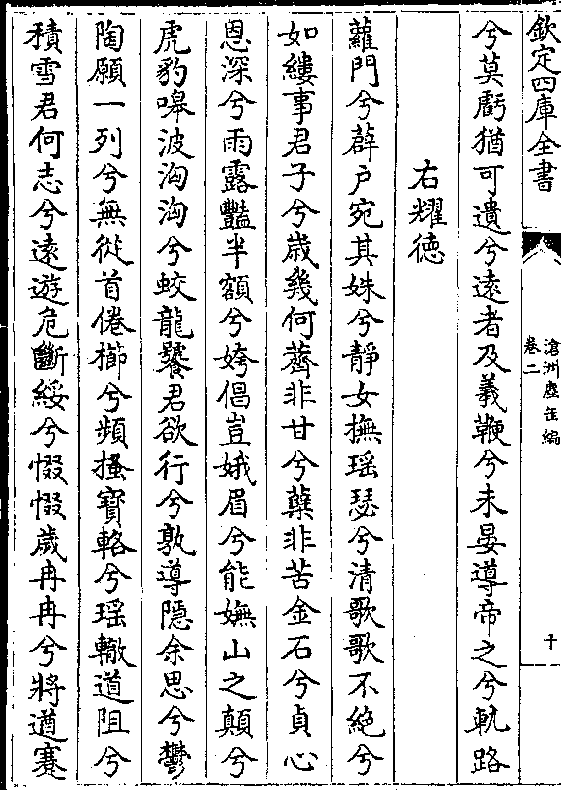 欽定四庫全書
滄洲塵缶編
卷二
十
兮莫虧猶可遺兮遠者及羲鞭兮未晏導帝之兮軌路
右耀德
蘿門兮薜户宛其姝兮靜女撫瑶瑟兮清歌歌不絶兮
如縷事君子兮歳幾何薺非甘兮蘖非苦金石兮貞心
恩深兮雨露豔半額兮姱倡豈娥眉兮能嫵山之顛兮
虎豹嘷波洶洶兮蛟龍饕君欲行兮孰導隱余思兮鬱
陶願一列兮無從首倦櫛兮頻搔寳輅兮瑶轍道阻兮
積雪君何志兮遠遊危斷綏兮惙惙歳冉冉兮將遒蹇